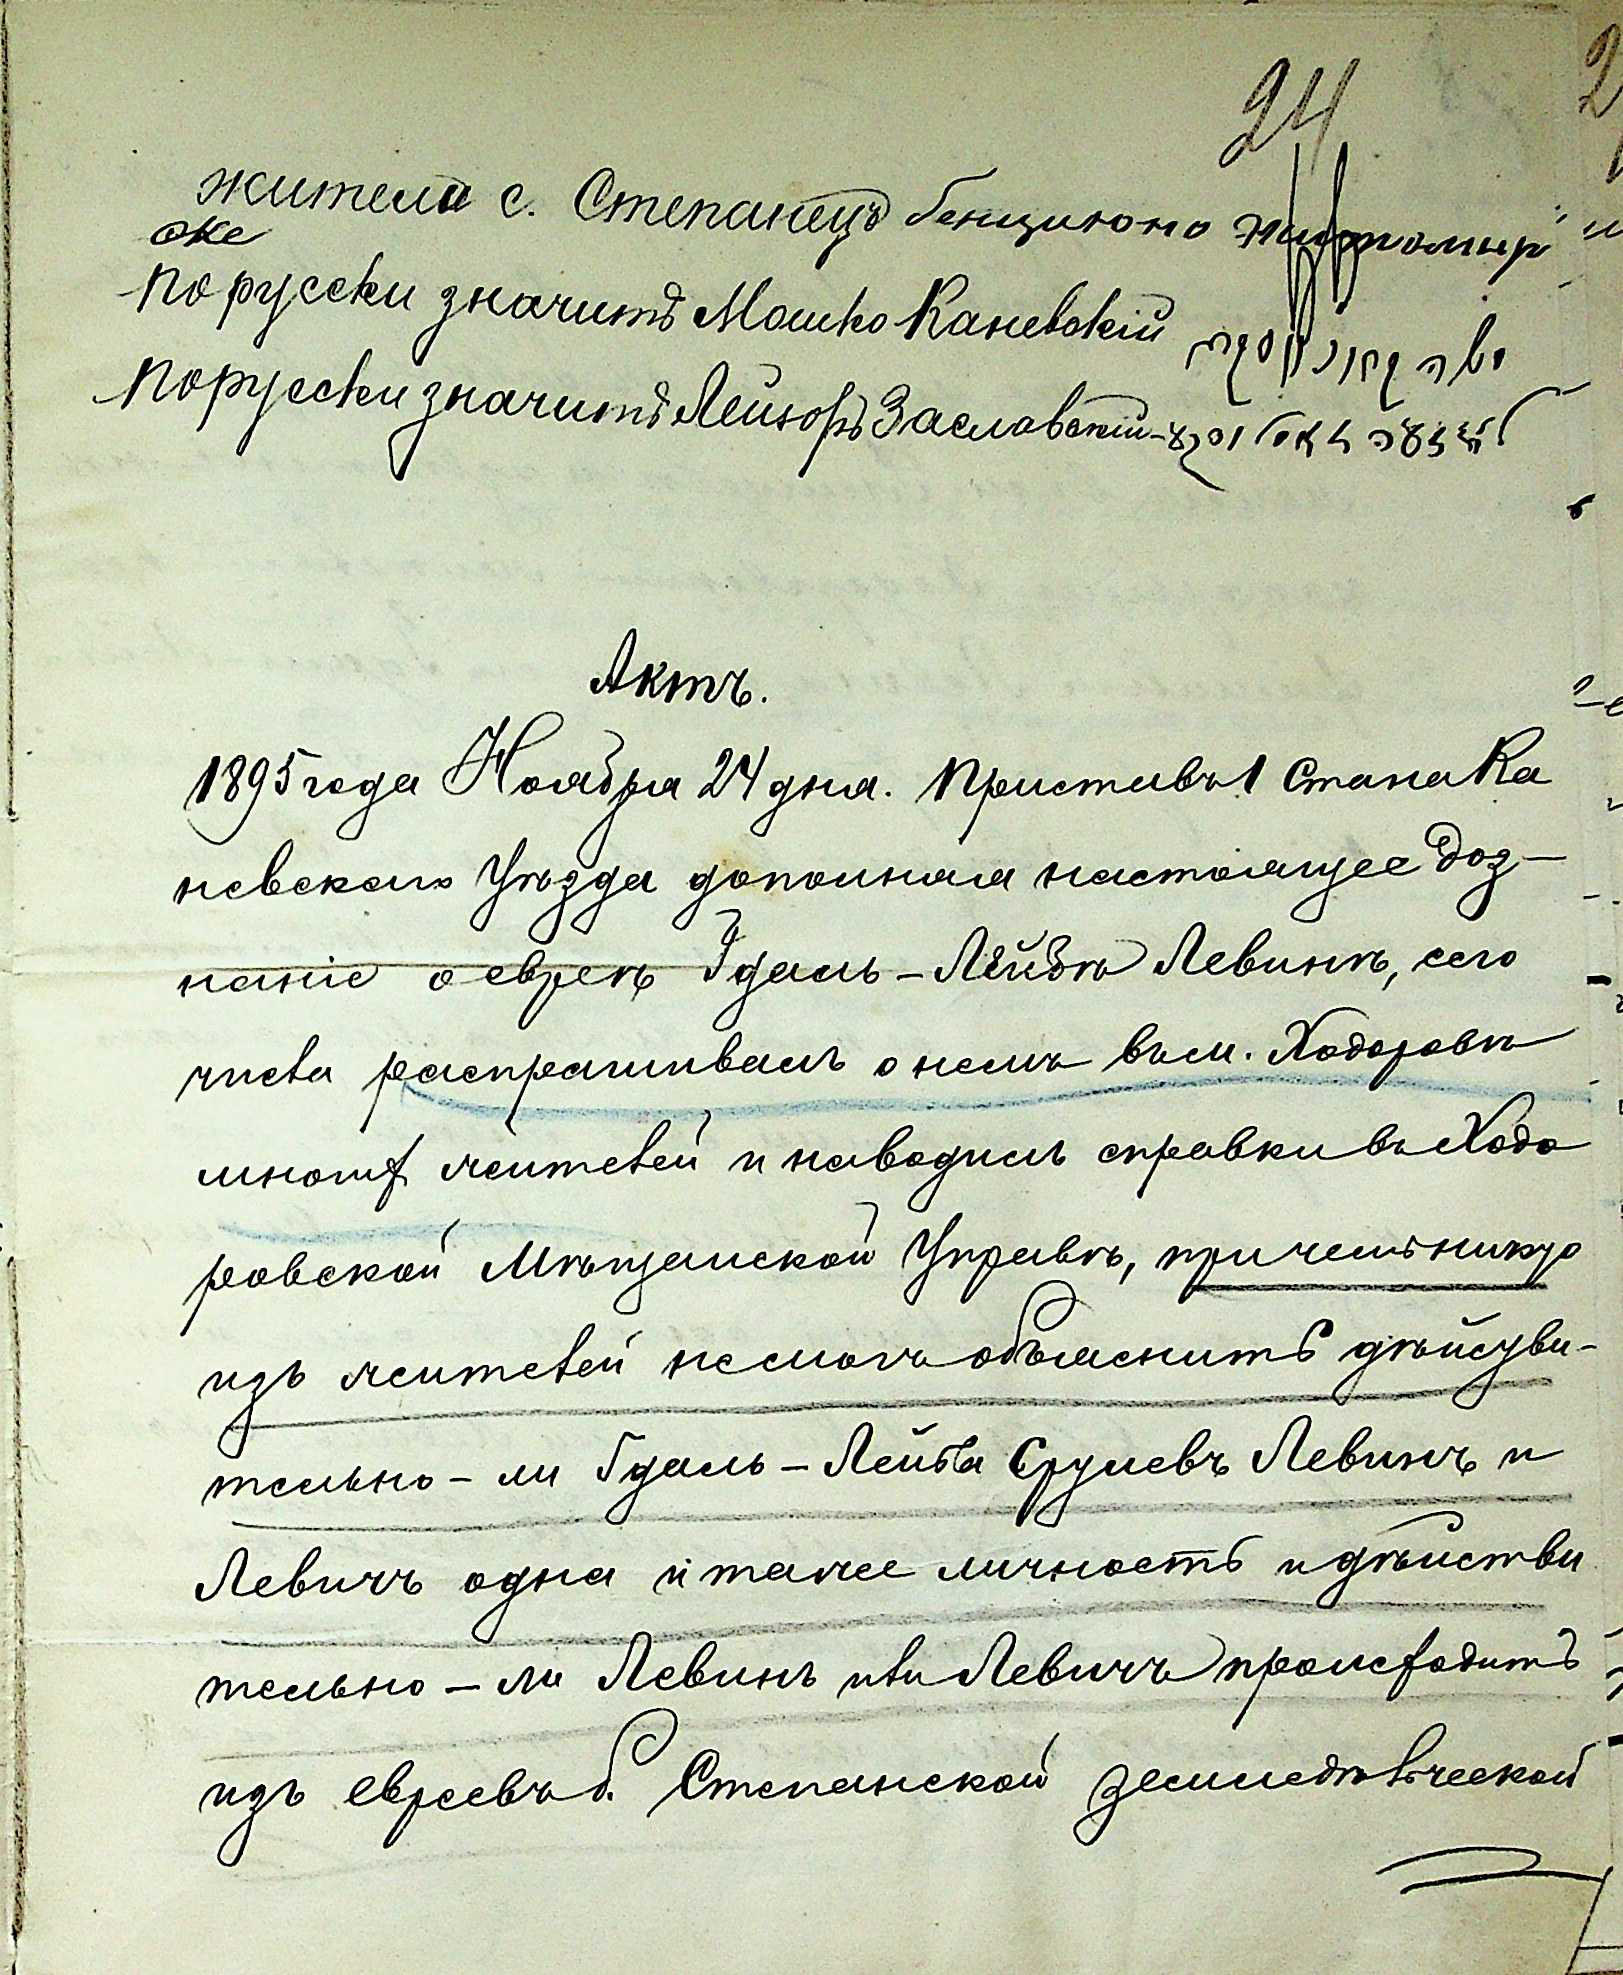 24
жители с. Степанецъ бенционо житомир
ске
порусски значитъ Мошко Каневскій
порусски значитъ Лейзоръ Заславскій
Актъ.
1895 года Ноября 24 дня. Приставъ 1 Стана Ка
невскаго Уѣзда дополняя настоящее доз-
наніе о евреѣ Гдаль-Лейбѣ Левинѣ, сего
числа распрашивалъ о немъ въ м. Ходоровѣ
многих жителей и наводилъ справки въ Ходо
ровской Мѣщанской Управѣ, причемъ никто
изъ жителей не могъ объяснить дѣйстви-
тельно-ли Гдаль-Лейба Срулевъ Левинъ и
Левичъ одна и таже личность и дѣйстви
тельно-ли Левинъ или Левичъ происходитъ
изъ евреевъ б. Степанской земледѣльческой